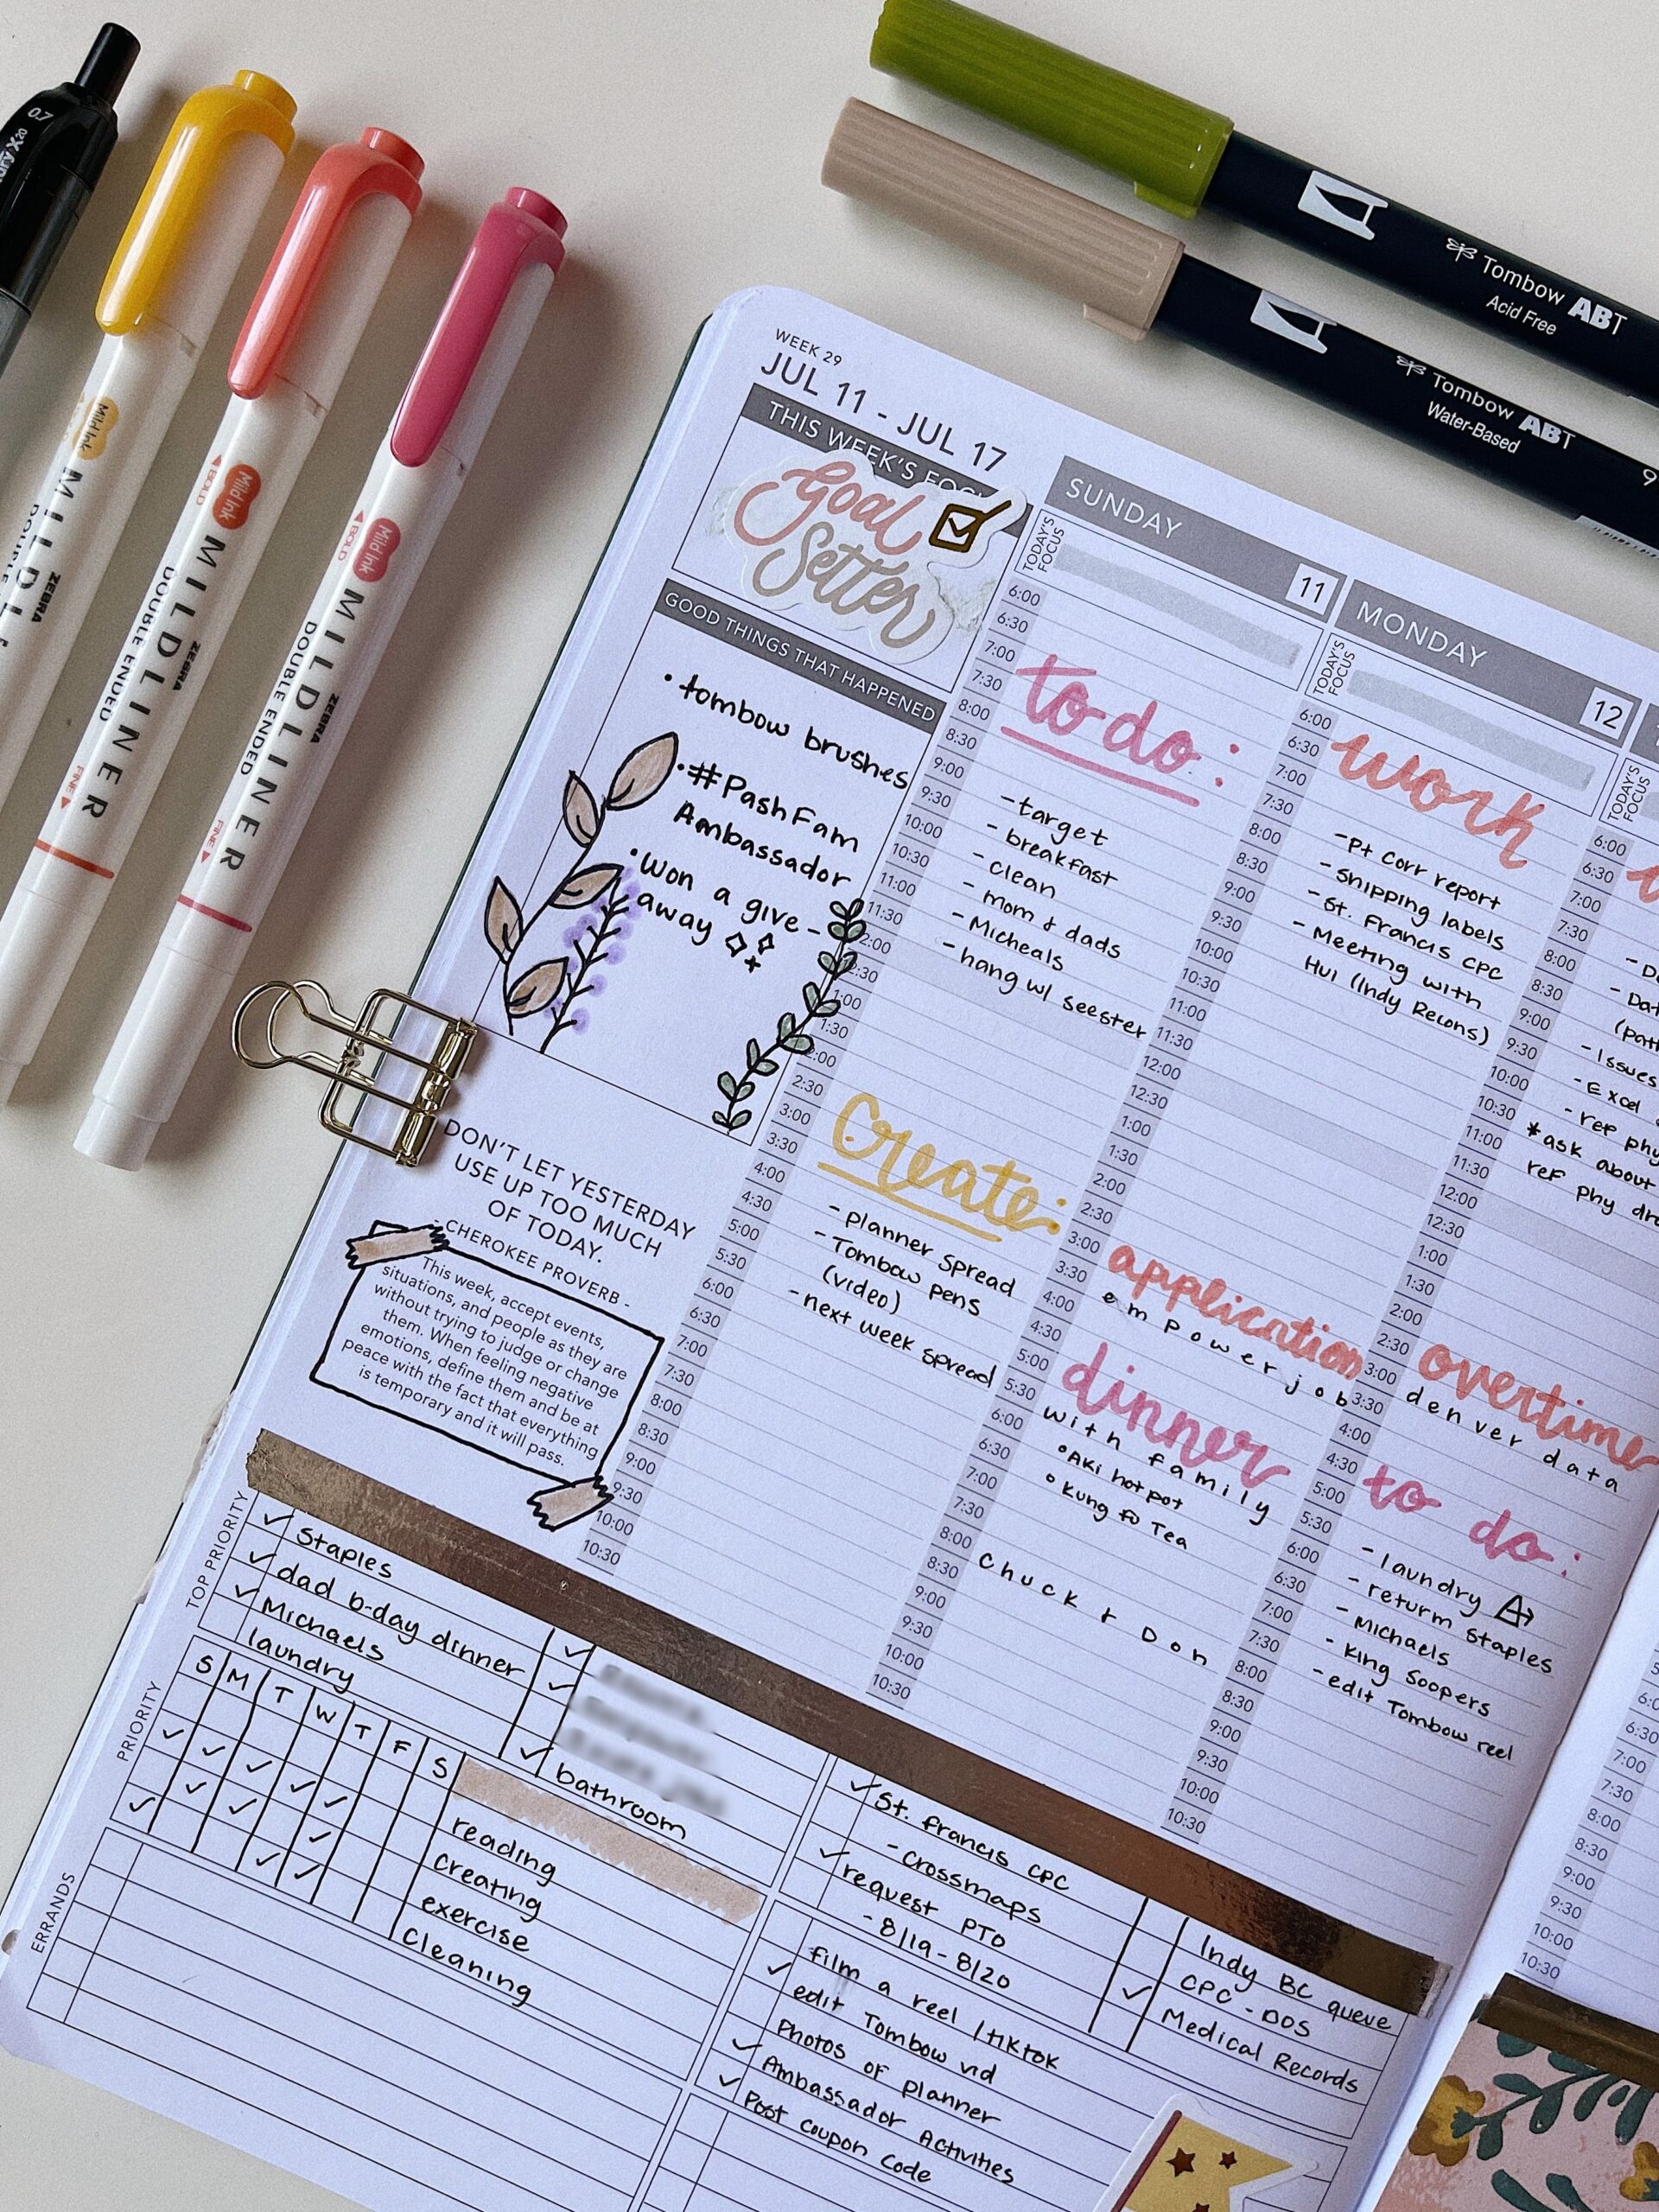 0.7
Mild Ink
ZEBRA
MILDLINER
DOUBLE ENDED
Mild Ink
◄BOLD
ZEBRA
MILDLINER
DOUBLE ENDED
FINE►
Mild Ink
◄BOLD
ZEBRA
MILDLINER
DOUBLE ENDED
FINE►
Tombow ABT
Acid Free
Tombow ABT
Water-Based
WEEK 29
JUL 11 - JUL 17
THIS WEEK'S FOCUS
Goal
Setter
GOOD THINGS THAT HAPPENED
• tombow brushes
• #PashFam
Ambassador
• Won a give-
away
DON'T LET YESTERDAY
USE UP TOO MUCH
OF TODAY.
- CHEROKEE PROVERB -
This week, accept events,
situations, and people as they are
without trying to judge or change
them. When feeling negative
emotions, define them and be at
peace with the fact that everything
is temporary and it will pass.
SUNDAY
11
TODAY'S
FOCUS
6:00
6:30
7:00
7:30
8:00
8:30
9:00
9:30
10:00
10:30
11:00
11:30
2:00
2:30
1:00
1:30
2:00
2:30
3:00
3:30
4:00
4:30
5:00
5:30
6:00
6:30
7:00
7:30
8:00
8:30
9:00
9:30
10:00
10:30
to do:
- target
- breakfast
- clean
- mom & dads
- Micheals
- hang w/ seester
Create:
- planner spread
- Tombow pens
(video)
- next week spread
MONDAY
12
TODAY'S
FOCUS
6:00
6:30
7:00
7:30
8:00
8:30
9:00
9:30
10:00
10:30
11:00
11:30
12:00
12:30
1:00
1:30
2:00
2:30
3:00
3:30
4:00
4:30
5:00
5:30
6:00
6:30
7:00
7:30
8:00
8:30
9:00
9:30
10:00
10:30
work
- Pt Corr report
- Shipping labels
- St. Francis CPC
- Meeting with
Hui (Indy Recons)
application
empower job
dinner
with family
• Aki hot pot
• Kung fu Tea
Chuck & Don
TODAY'S
FOCUS
6:00
6:30
7:00
7:30
8:00
8:30
9:00
9:30
10:00
10:30
11:00
11:30
12:00
12:30
1:00
1:30
2:00
2:30
3:00
3:30
4:00
4:30
5:00
5:30
6:00
6:30
7:00
7:30
8:00
8:30
9:00
9:30
10:00
10:30
- Issues
- Excel
- ref phy
*ask about
ref phy
overtime
denver data
to do:
- laundry
- return Staples
- Michaels
- King Soopers
- edit Tombow reel
6:30
7:00
7:30
8:00
8:30
9:00
9:30
10:00
10:30
TOP PRIORITY
✓ Staples
✓ dad b-day dinner
✓ Michaels
laundry
✓
✓
✓ bathroom
PRIORITY
S M T W T F S
reading
creating
exercise
cleaning
ERRANDS
✓ St. Francis CPC
- crossmaps
✓ request PTO
- 8/19 - 8/20
Indy BC queue
CPC - DOS
✓ Medical Records
film a reel / tiktok
✓ edit Tombow vid
Photos of planner
✓ Ambassador Activities
✓ Post coupon code